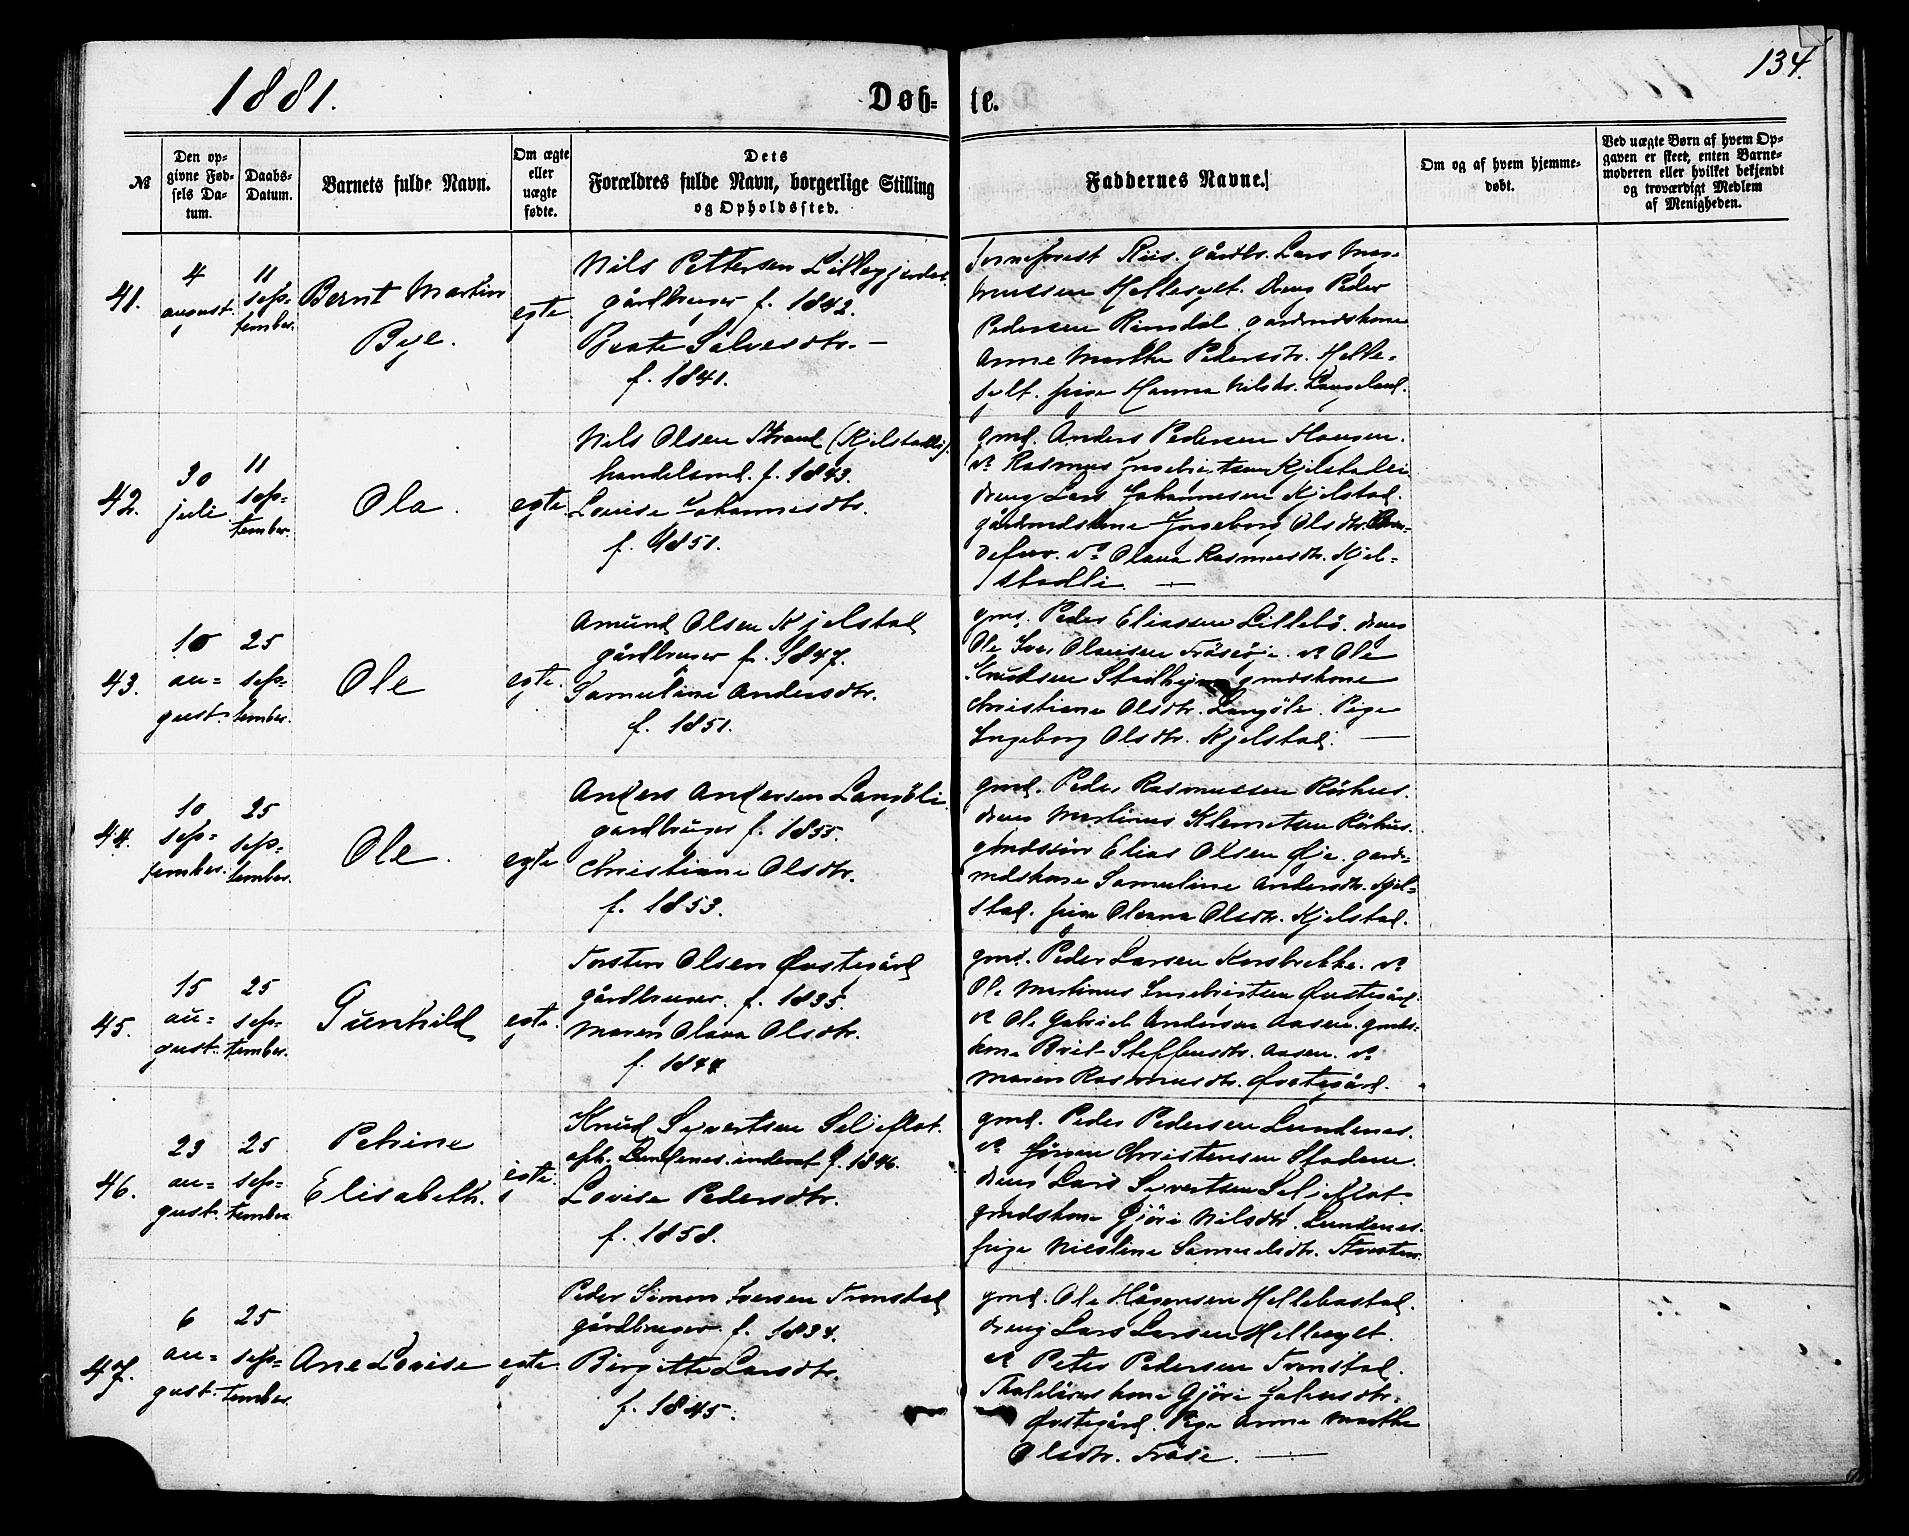 1881.
Døb-
te.
134.
№
Den op-
givne Fød-
sels Da-
tum.
Daabs-
Datum.
Barnets fulde Navn.
Om ægte
eller
uægte
fødte.
Dets
Forældres fulde Navn, borgerlige Stilling
og Opholdssted.
Faddernes Navne.
Om og af hvem hjemme-
døbt.
Ved uægte Børn af hvem Op-
gaven er skeet, enten Barne-
moderen eller hvilket bekjendt
og troværdigt Medlem
af Menigheden.
41.
4
august.
11
sep-
tember.
Bernt Martin
Bye.
egte
Nils Pettersen Lillegjerdet
gårdbruger f. 1842.
Beate Salvesdtr. —
f. 1841.
Riis. gårdbr. Lars
Hellesylt. Dreng Peder
Pedersen Ringdal. gårdmdskone
Anne Marthe Pedersdtr. Helle-
sylt. pige Hanna Nilsdtr. Langeland.
42.
30
juli
11
sep-
tember.
Ola.
egte.
Nils Olsen Strand (Kjelstadli).
handelsmd. f. 1843.
Lovise Johannesdtr.
f. 1851.
gmd. Anders Pedersen Haugen.
do Rasmus Ingebrigtsen Kjelstadli
dreng Lars Johannesen Kjelstad.
gårdmdskone Ingeborg Olsdtr.
do Olava Rasmusdtr. Kjel-
stadli. —
43.
10
au-
gust.
25
sep-
tember.
Ole
egte.
Amund Olsen Kjelstad
gårdbruger f. 1847.
Samuline Andersdtr.
f. 1851.
gmd. Peder Eliassen Lillebø. dreng
Ole Iver Olausen Frøsøie. do Ole
Knudsen Stadheim gmdskone
Christiane Olsdtr. Langøli. Pige
Ingeborg Olsdtr. Kjelstad. —
44.
10
sep-
tember.
25
sep-
tember.
Ole.
egte
Anders Andersen Langöli
gardbruger f. 1855.
Christiane Olsdtr.
f. 1853.
gmd. Peder Rasmussen Rörhus.
dreng Martinus Klemetsen Rörhus.
gmdssön Elias Olsen Øje. gard-
mdskone Samuline Andersdtr. Kjel-
stad. pige Oleana Olsdtr. Kjelstad.
45.
15
au-
gust.
25
sep-
tember.
Gunhild
egte.
Torsten Olsen Øvstegård
gårdbruger. f. 1835.
Maren Olava Olsdtr.
f. 1844
gmd. Peder Larsen Korsbrekke. do
Ole Martinus Ingebrigtsen Øvstegård.
do Ole Gabriel Andersen Aasen. gmds-
kone Brit Steffensdtr. Aasen. do
Maren Rasmusdtr. Øvstegård.
46.
23
au-
gust.
25
sep-
tember
Petrine
Elisabeth.
egte
Knud Syvertsen Seljeflot.
oph. Lundenes. inderst f. 1846.
Lovise Pedersdtr.
f. 1858.
gmd. Peder Pedersen Lundenes.
do Jörgen Christensen Stadem.
dreng Lars Syvertsen Seljeflot
gmdskone Gjöri Nilsdtr. Lundenes.
pige Nicoline Samuelsdtr.
47.
6
au-
gust.
25
sep-
tember.
Ane Lovise
egte
Peder Simon Iversen Tronstad
gårdbruger. f. 1834.
Birgitte Larsdtr.
f. 1845.
gmd. Ole Hågensen Hellebostad.
dreng Lars Larsen Hellesylt.
do Peter Pedersen Tronstad.
kone Gjöri Johnsdtr.
Øvstegård. Pige Anne Marthe
Olsdtr. Fröse. —